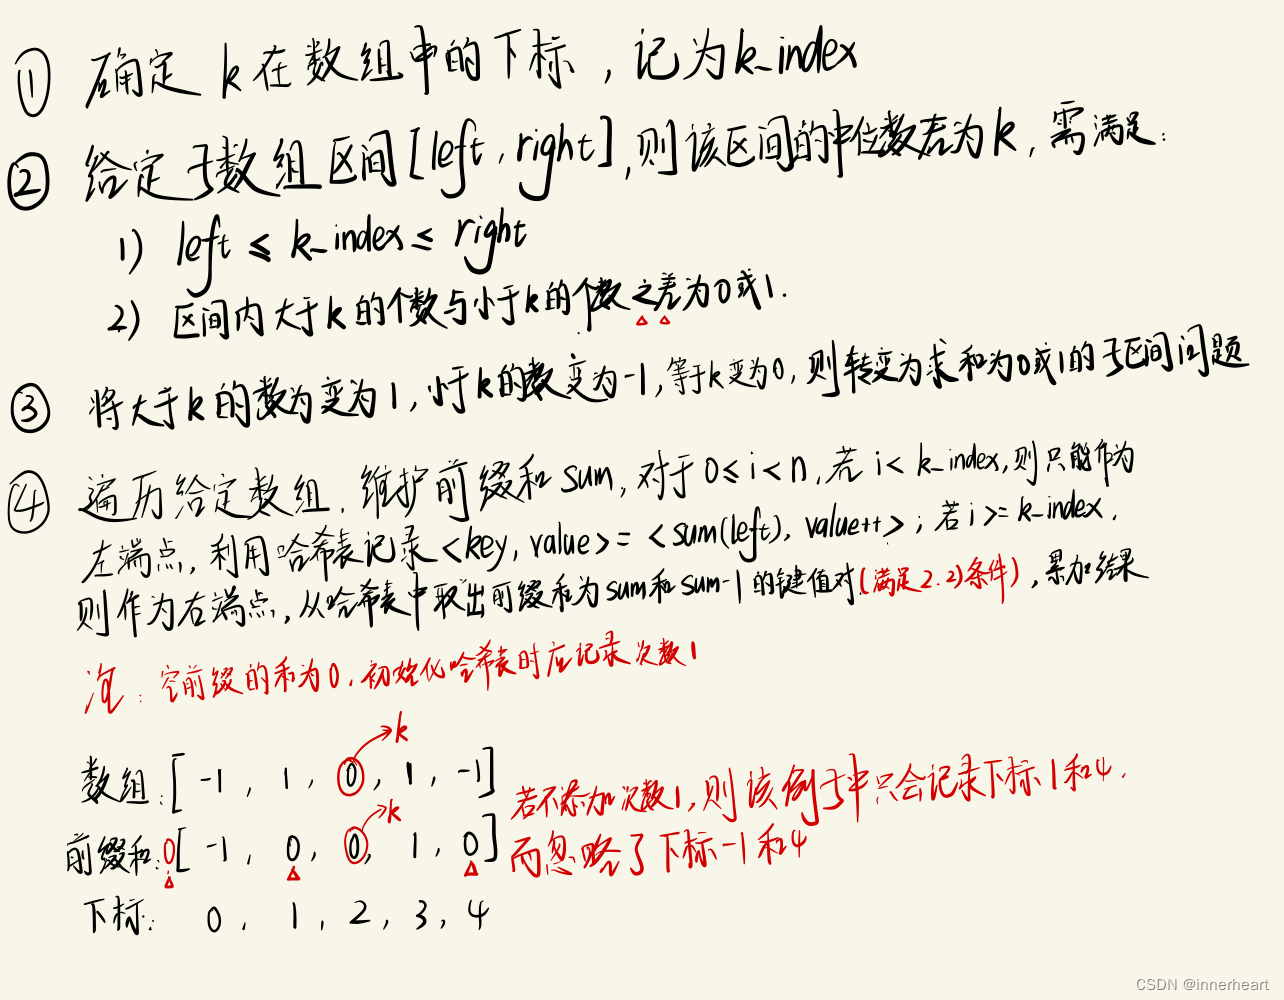 ① 确定 k 在数组中的下标，记为k_index
② 给定子数组区间[left, right],则该区间的中位数若为k,需满足:
1) left ≤ k_index ≤ right
2) 区间内大于k的个数与小于k的个数之差为0或1.
③ 将大于k的数为变为1,小于k的数变为-1,等于k变为0,则转变为求和为0或1的子区间问题
④ 遍历给定数组,维护前缀和sum,对于0≤i<n,若i<k_index,则只能作为
左端点,利用哈希表记录<key, value>=<sum(left), value++>;若i>=k_index,
则作为右端点,从哈希表中取出前缀和为sum和sum-1的键值对(满足2.2)条件),累加结果
注:空前缀的和为0,初始化哈希表时应记录次数1
k
数组:[-1, 1, 0, 1, -1]
若不添加次数1,则该例子中只会记录下标1和4,
k
前缀和:0[-1, 0, 0, 1, 0]
而忽略了下标-1和4
下标: 0, 1, 2, 3, 4
CSDN @innerheart